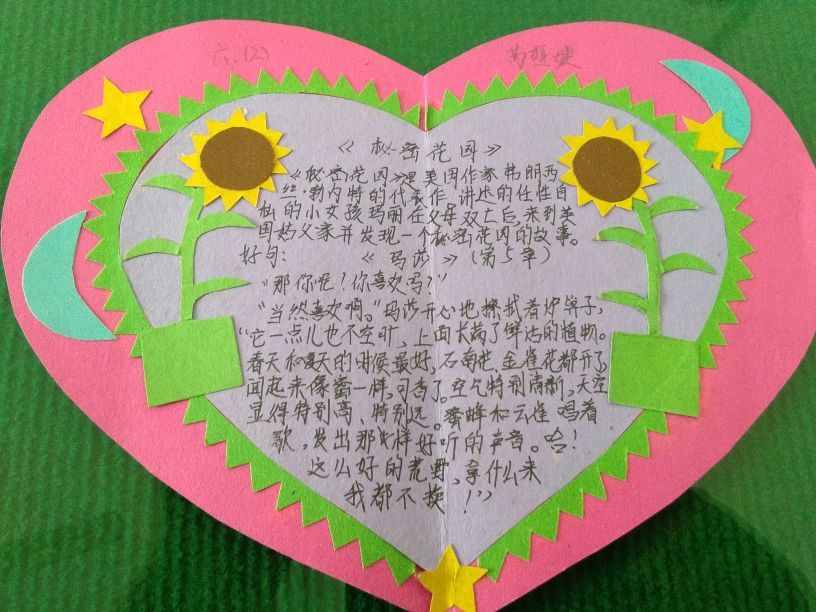 六.(2)
《秘密花园》
《秘密花园》是美国作家弗朗西
丝·勃内特的代表作,讲述的任性自
私的小女孩玛丽在父母双亡后,来到英
国姑父家并发现一个秘密花园的故事。
好句: 《玛莎》(第5章)
“那你呢?你喜欢吗?”
“当然喜欢啊。”玛莎开心地擦拭着炉箅子,
“它一点儿也不空旷,上面长满了鲜活的植物。
春天和夏天的时候最好,石南花、金雀花都开了,
闻起来像蜜一样,可香了。空气特别清新,天空
显得特别高、特别远。蜜蜂和云雀唱着
歌,发出那么样好听的声音。哈!
这么好的荒野,拿什么来
我都不换!”